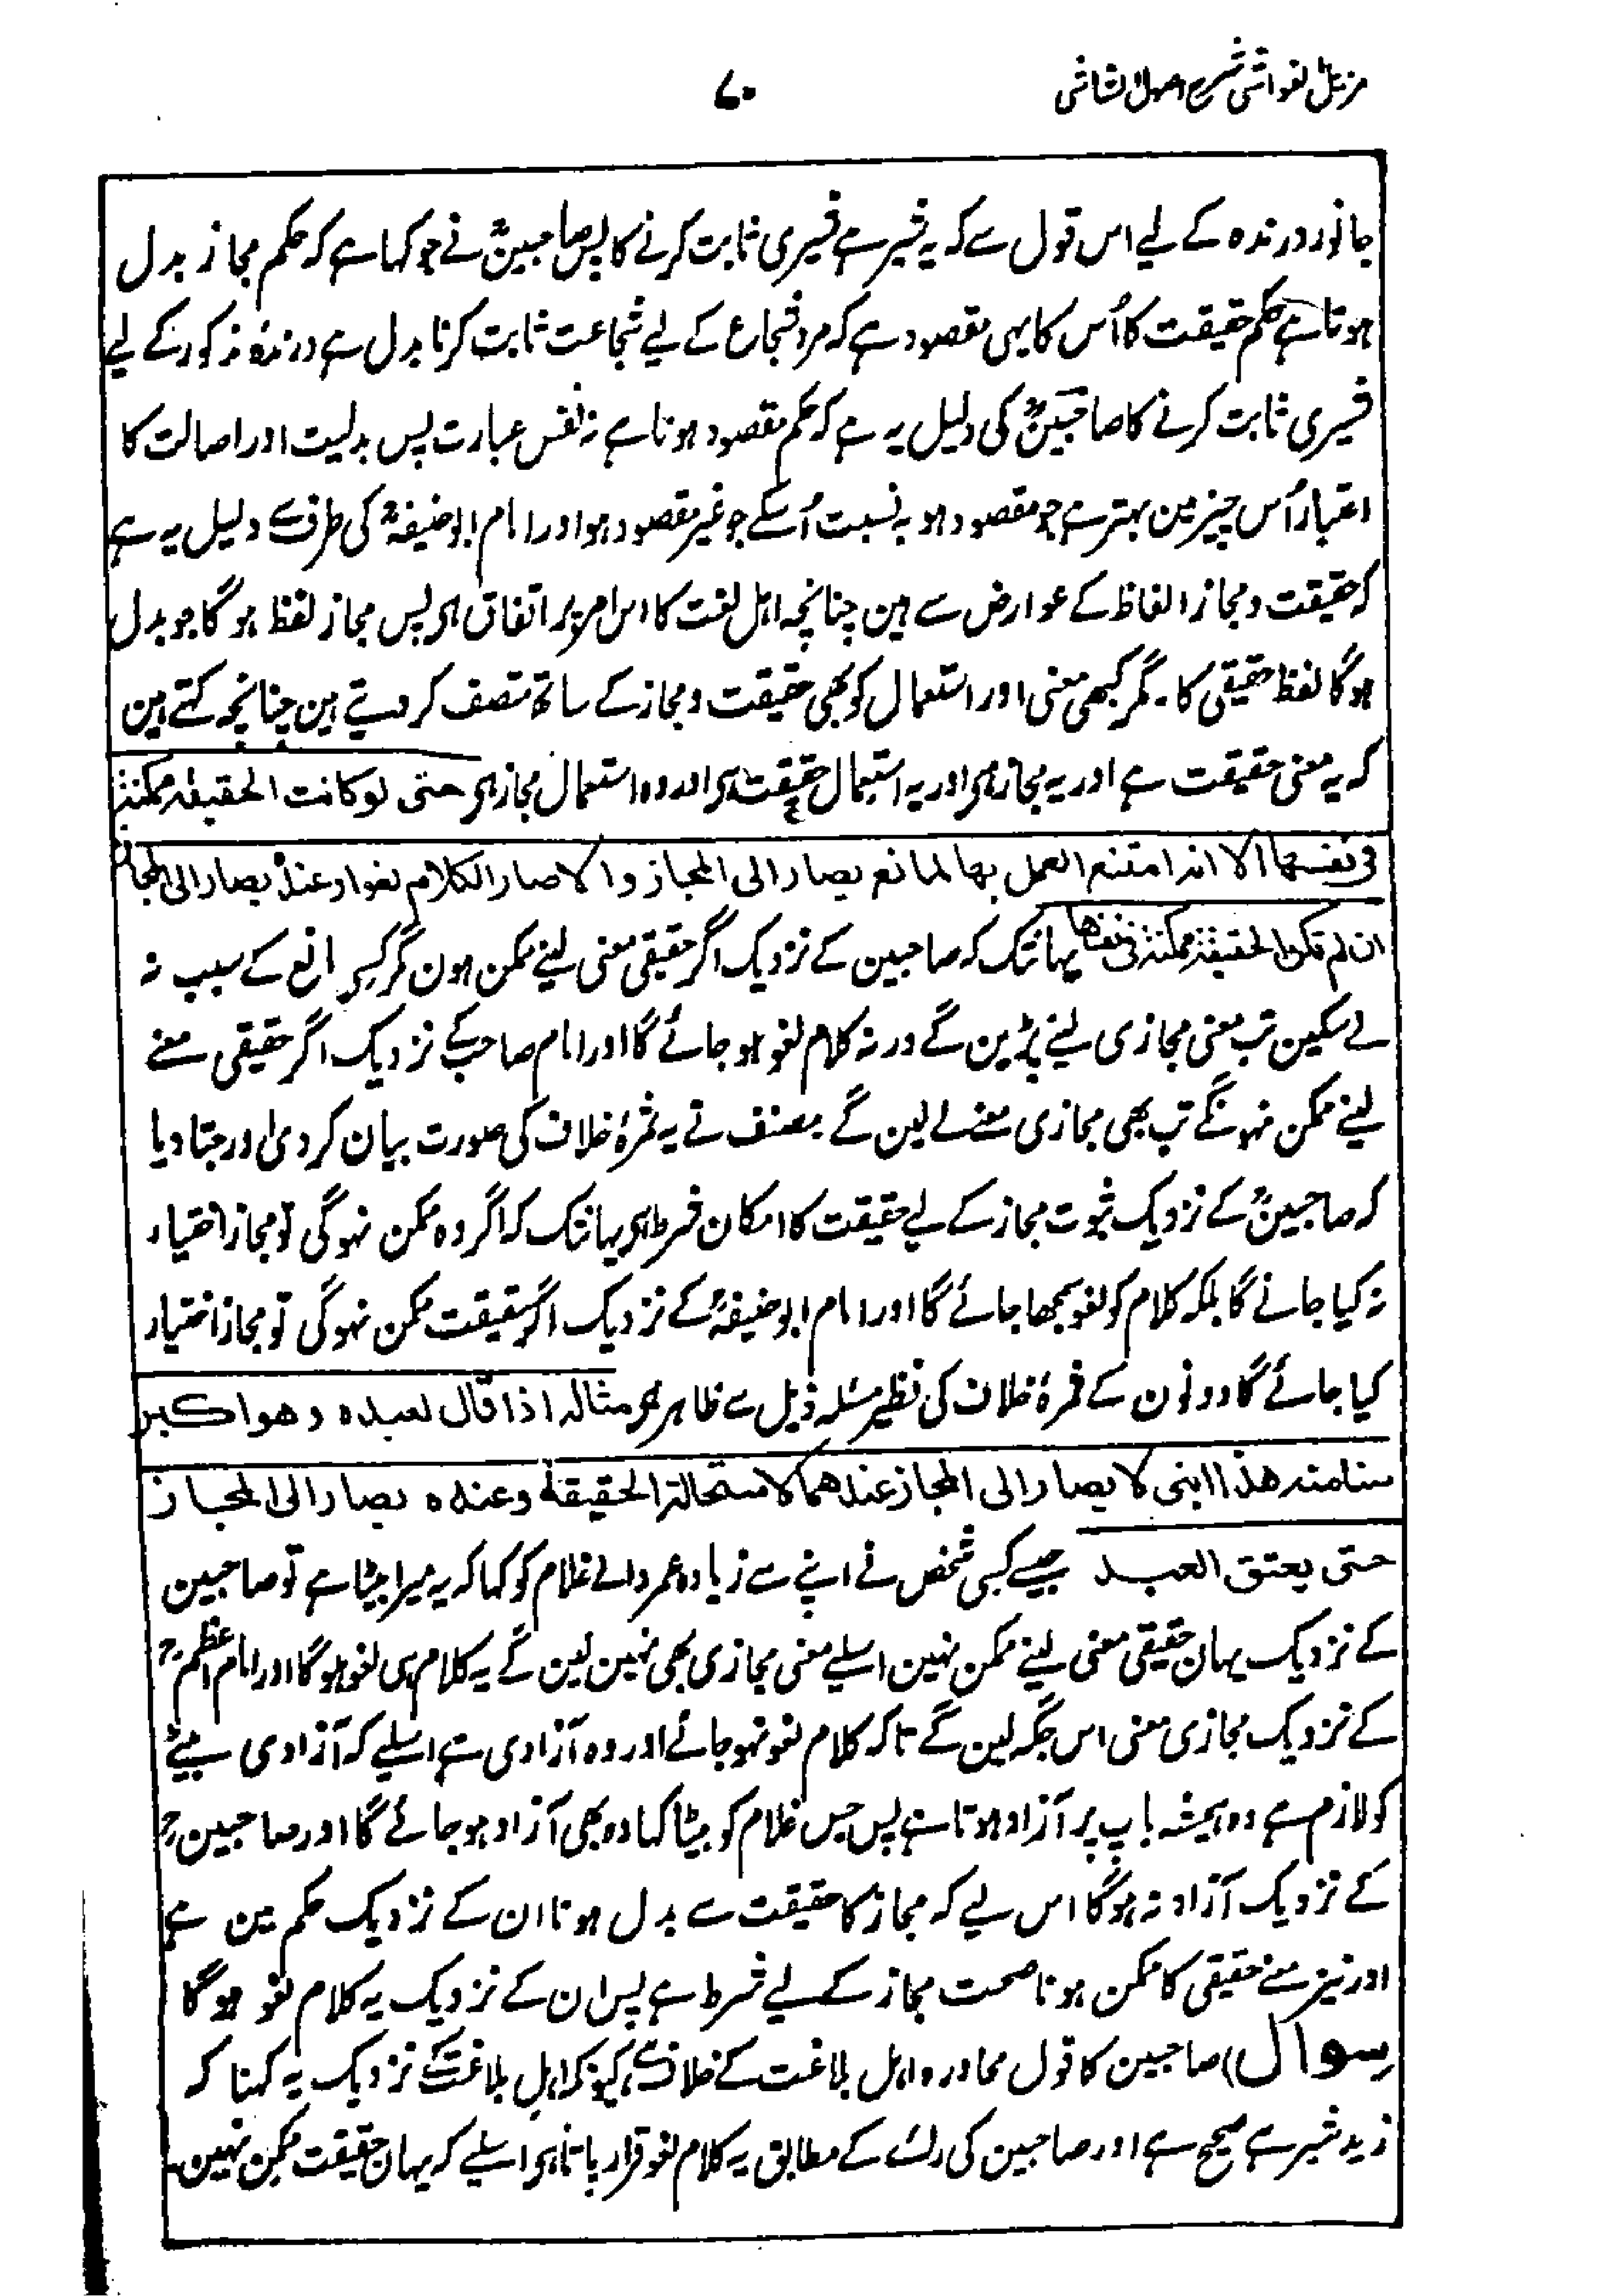 مزیل الغواشی شرح اصول الشاشی
۷۰
جانور درندہ کے لیے اس قول سے کہ یہ شیر ہے شیری ثابت کرنے کا پس صاحبینؒ نے جو کہا ہے کہ حکم مجاز بدل
ہوتا ہے حکم حقیقت کا اُس کا یہی مقصود ہے کہ مرد شجاع کے لیے شجاعت ثابت کرنا بدل ہے درندۂ مذکور کے لیے
شیری ثابت کرنے کا صاحبینؒ کی دلیل یہ ہے کہ حکم مقصود ہوتا ہے نہ نفس عبارت پس بدلیت اور اصالت کا
اعتبار اُس چیز مین بہتر ہے جو مقصود ہو بہ نسبت اُسکے جو غیر مقصود ہو اور امام ابو حنیفہؒ کی طرف سے دلیل یہ ہے
کہ حقیقت و مجاز الفاظ کے عوارض سے ہین چنانچہ اہل لغت کا اس امر پر اتفاق ہی پس مجاز لفظ ہو گا جو بدل
ہوگا لفظ حقیقی کا۔ مگر کبھی معنی اور استعمال کو بھی حقیقت و مجاز کے ساتھ متصف کر دیتے ہین چنانچہ کہتے ہین
کہ یہ معنی حقیقت ہے اور یہ مجاز ہی اور یہ استعمال حقیقت ہی اور وہ استعمال مجاز ہی حتی لو کانت الحقیقۃ ممکنۃ
فی نفسہا الا انہ امتنع العمل بہا لمانع یصار الی المجاز والا صار الکلام لغوا وعندہ یصار الی المجاز
ان لم تکن الحقیقۃ ممکنۃ فی نفسہا یہانتک کہ صاحبین کے نزدیک اگر حقیقی معنی لینے ممکن ہون مگر کسی مانع کے سبب نہ
لے سکین تب معنی مجازی لینے پڑین گے ورنہ کلام لغو ہو جائے گا اور امام صاحب کے نزدیک اگر حقیقی معنے
لینے ممکن نہونگے تب بھی مجازی معنے لے لین گے مصنف نے یہ ثمرۂ خلاف کی صورت بیان کر دی اور جتا دیا
کہ صاحبینؒ کے نزدیک ثبوت مجاز کے لیے حقیقت کا امکان شرط ہی یہانتک کہ اگر وہ ممکن نہوگی تو مجاز اختیار
نہ کیا جائے گا بلکہ کلام کو لغو سمجھا جائے گا اور امام ابو حنیفہؒ کے نزدیک اگر حقیقت ممکن نہوگی تو مجاز اختیار
کیا جائے گا دونون کے ثمرۂ خلاف کی نظیر مسئلہ ذیل سے ظاہر ہی مثالہ اذا قال لعبدہ وھو اکبر
سنا منہ ھذا ابنی لا یصار الی المجاز عندھما لاستحالۃ الحقیقۃ وعندہ یصار الی المجاز
حتی یعتق العبد جیسے کسی شخص نے اپنے سے زیادہ عمر والے غلام کو کہا کہ یہ میرا بیٹا ہے تو صاحبین
کے نزدیک یہان حقیقی معنی لینے ممکن نہین اسلیے معنی مجازی بھی نہین لین گے یہ کلام ہی لغو ہوگا اور امام اعظمؒ
کے نزدیک مجازی معنی اس جگہ لین گے تاکہ کلام لغو نہو جائے اور وہ آزادی ہے اسلیے کہ آزادی بیٹے
کو لازم ہے وہ ہمیشہ باپ پر آزاد ہوتا ہے پس جس غلام کو بیٹا کہا وہ بھی آزاد ہو جائے گا اور صاحبینؒ
کے نزدیک آزاد نہ ہوگا اس لیے کہ مجاز کا حقیقت سے بدل ہونا ان کے نزدیک حکم مین ہے
اور نیز معنے حقیقی کا ممکن ہونا صحت مجاز کے لیے شرط ہے پس ان کے نزدیک یہ کلام لغو ہوگا
(سوال) صاحبین کا قول محاورہ اہل بلاغت کے خلاف ہے کیونکہ اہل بلاغت کے نزدیک یہ کہنا کہ
زید شیر ہے صحیح ہے اور صاحبین کی رائے کے مطابق یہ کلام لغو قرار پاتا ہی اسلیے کہ یہان حقیقت ممکن نہین۔